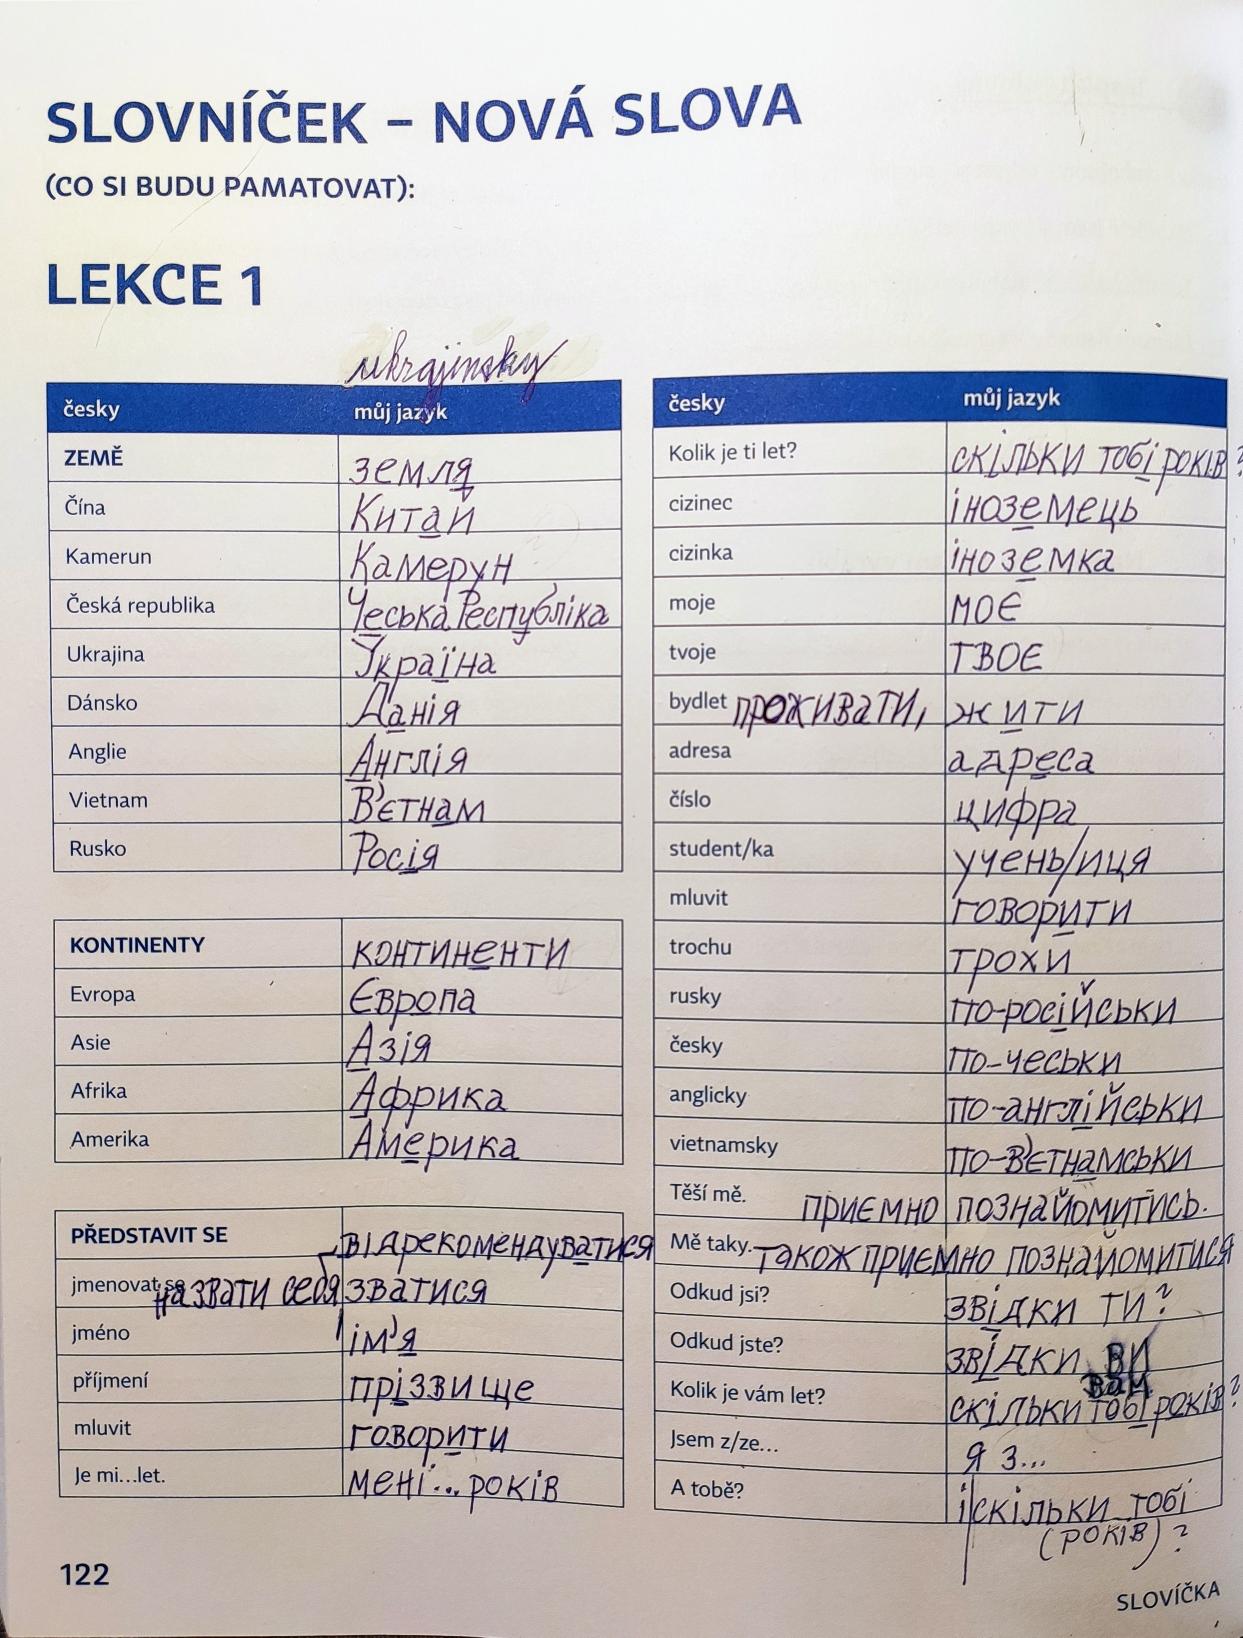 SLOVNÍČEK – NOVÁ SLOVA
(CO SI BUDU PAMATOVAT):
LEKCE 1
ukrajinsky
česky můj jazyk
ZEMĚ земля
Čína Китай
Kamerun Камерун
Česká republika Чеська Республіка
Ukrajina Україна
Dánsko Данія
Anglie Англія
Vietnam В'єтнам
Rusko Росія
KONTINENTY континенти
Evropa Європа
Asie Азія
Afrika Африка
Amerika Америка
PŘEDSTAVIT SE відрекомендуватися
jmenovat se назвати себя зватися
jméno ім'я
příjmení прізвище
mluvit говорити
Je mi...let. мені... років
česky můj jazyk
Kolik je ti let? скільки тобі років?
cizinec іноземець
cizinka іноземка
moje моє
tvoje твоє
bydlet проживати, жити
adresa адреса
číslo цифра
student/ka учень/иця
mluvit говорити
trochu трохи
rusky по-російськи
česky по-чеськи
anglicky по-англійськи
vietnamsky по-в'єтнамськи
Těší mě. приємно познайомитись.
Mě taky. також приємно познайомитися
Odkud jsi? звідки ти?
Odkud jste? звідки ви
вам
Kolik je vám let? скільки тобі років?
Jsem z/ze... я з...
A tobě? і скільки тобі
(років)?
122
SLOVÍČKA